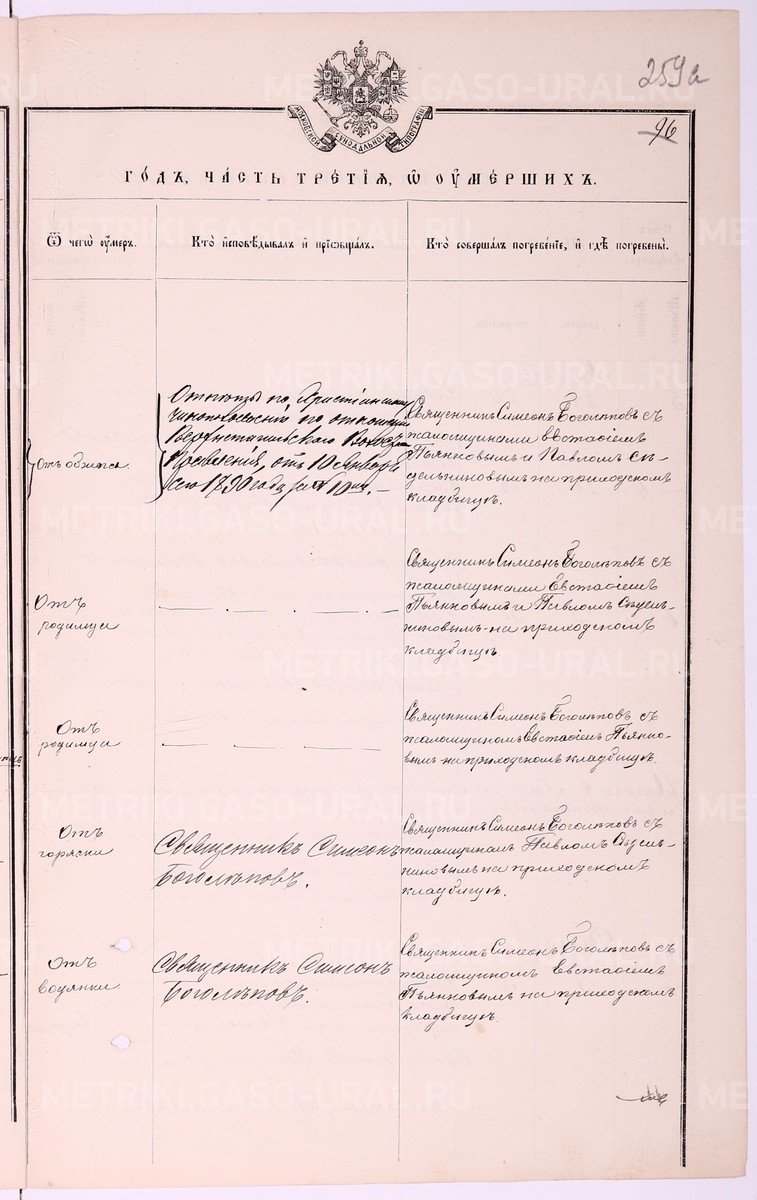 259а
96
МОСКОВСКОЙ СѴНОДАЛЬНОЙ ТИПОГРАФІИ
ГО́ДЪ, ЧА́СТЬ ТРЕ́ТІѦ, Ѡ҆ ОУ҆МЕ́РШИХЪ.
Ѿ чегѡ̀ оу҆́меръ.
Кто̀ и҆сповѣ́дывалъ и҆ прїѡбща́лъ.
Кто̀ соверша́лъ погребе́нїе, и҆ гдѣ̀ погребены̀.
Отпѣтъ по Христіанскому
чиноположенію по отношенію
Волостнаго
Правленія, отъ 10 Января
сего 1890 года за № 10 м. –
Отъ
Священникъ Симеонъ Боголѣповъ съ
псаломщиками Евстафіемъ
Пьянковымъ и Павломъ Сѣ-
дельниковымъ на приходскомъ
кладбищѣ.
Отъ
родимца
Священникъ Симеонъ Боголѣповъ съ
псаломщиками Евстафіемъ
Пьянковымъ и Павломъ Сѣдель-
никовымъ – на приходскомъ
кладбищѣ.
Отъ
родимца
Священникъ Симеонъ Боголѣповъ съ
псаломщикомъ Евстафіемъ Пьянко-
вымъ на приходскомъ кладбищѣ.
Отъ
горячки
Священникъ Симеонъ
Боголѣповъ.
Священникъ Симеонъ Боголѣповъ съ
псаломщикомъ Павломъ Сѣдель-
никовымъ на приходскомъ
кладбищѣ.
Отъ
водянки
Священникъ Симеонъ
Боголѣповъ.
Священникъ Симеонъ Боголѣповъ съ
псаломщикомъ Евстафіемъ
Пьянковымъ на приходскомъ
кладбищѣ.
METRIKI.GASO-URAL.RU